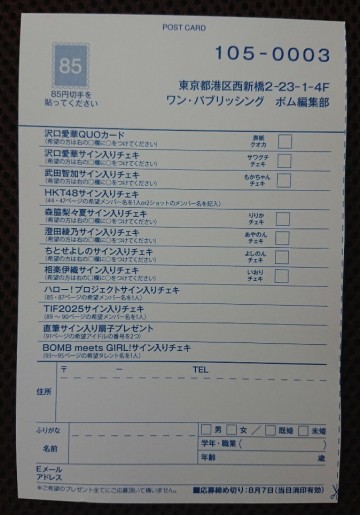 POST CARD
105-0003
85
85円切手を
貼ってください
東京都港区西新橋2-23-1-4F
ワン・パブリッシング ボム編集部
沢口愛華QUOカード
(希望の方は右の□欄に○をつけてください)
表紙
クオカ
沢口愛華サイン入りチェキ
(希望の方は右の□欄に○をつけてください)
サワグチ
チェキ
武田智加サイン入りチェキ
(希望の方は右の□欄に○をつけてください)
もかちゃん
チェキ
HKT48サイン入りチェキ
(44・47ページの希望メンバー名を1人or2ショットのメンバー名を記入)
森脇梨々夏サイン入りチェキ
(希望の方は右の□欄に○をつけてください)
りりか
チェキ
澄田綾乃サイン入りチェキ
(希望の方は右の□欄に○をつけてください)
あやのん
チェキ
ちとせよしのサイン入りチェキ
(希望の方は右の□欄に○をつけてください)
よしのん
チェキ
相楽伊織サイン入りチェキ
(希望の方は右の□欄に○をつけてください)
いおり
チェキ
ハロー!プロジェクトサイン入りチェキ
(85・87ページの希望メンバー名を1人)
TIF2025サイン入りチェキ
(89～90ページの希望メンバー名を1人)
直筆サイン入り扇子プレゼント
(91ページの希望アイドルの番号を2つ)
BOMB meets GIRL!サイン入りチェキ
(93～95ページの希望タレント名を1人)
〒 － TEL
住所
ふりがな
名前
□男 □女 / □既婚 □未婚
学年・職業( )
年齢 歳
Eメール
アドレス
※ご希望のプレゼント全てにご応募頂いて構いません。
■応募締め切り:8月7日(当日消印有効)